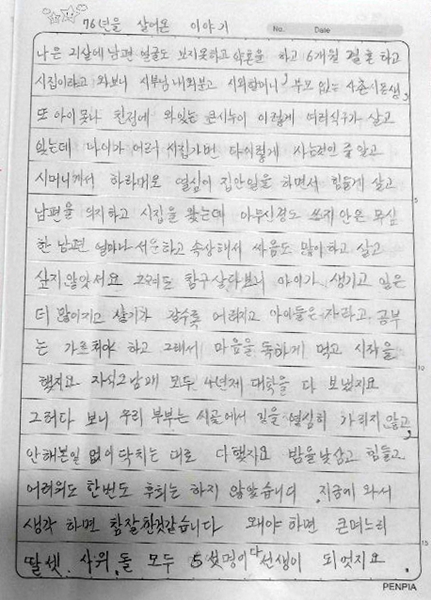 76년을 살어온 이야기
No. Date
나은 21살에 남편 얼굴도 보지못하고 약혼을 하고 6개월 결혼 하고
시집이라고 와보니 시부님 내외분고 시외할머니, 부모 없는 사촌시동생,
또 아이못나 친정에 와잇는 큰시누이 이렇게 여러식구가 살고
잇는데 나이가 어려 시집가면 다이렇게 사는것인 줄 알고
시머니께서 하라데로 열심이 집안일을 하면서 힘들게 살고
남편을 의지하고 시집을 왔는데 아무신경도 쓰지 안은 무심
한 남편 얼마나 서운하고 속상해서 싸음도 많이하고 살고
싶지않앗서요 그래도 참구살다보니 아이가 생기고 일은
더 많이지고 살기가 갈수록 어려지고 아이들은 자라고, 공부
는 가르처야 하고 그래서 마음을 독하게 먹고 시작을
햇지요 자식그남매 모두 4년제 대학을 다 보냈지요
그러다 보니 우리 부부는 시골에서 일을 열심히 가리지 않고,
안해본일 없이 닥치는 대로 다햇지요 밤을낮삼고 힘들고
어려워도 한번도 후회는 하지 않았습니다 지금에 와서
생각 하면 참잘한것갇습니다 왜야하면 큰며느리
딸셋. 사위 둘 모두 5섯명이다 선생이 되엇지요
5
10
15
PENPIA